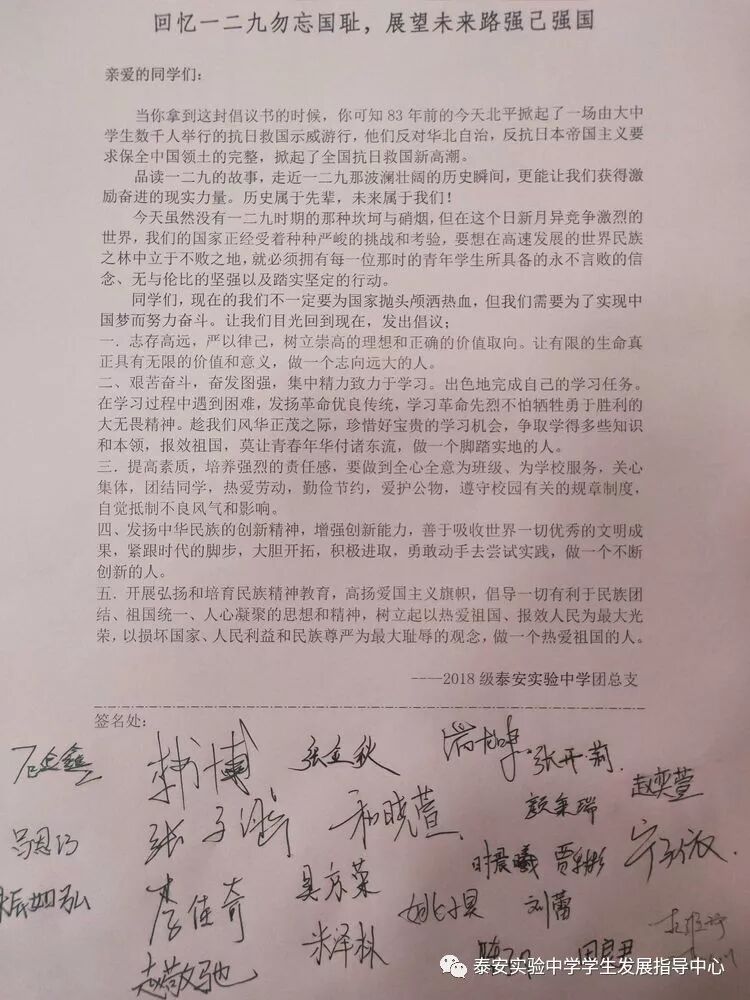 回忆一二九勿忘国耻，展望未来路强己强国
亲爱的同学们：
当你拿到这封倡议书的时候，你可知 83 年前的今天北平掀起了一场由大中
学生数千人举行的抗日救国示威游行，他们反对华北自治，反抗日本帝国主义要
求保全中国领土的完整，掀起了全国抗日救国新高潮。
品读一二九的故事，走近一二九那波澜壮阔的历史瞬间，更能让我们获得激
励奋进的现实力量。历史属于先辈，未来属于我们！
今天虽然没有一二九时期的那种坎坷与硝烟，但在这个日新月异竞争激烈的
世界，我们的国家正经受着种种严峻的挑战和考验，要想在高速发展的世界民族
之林中立于不败之地，就必须拥有每一位那时的青年学生所具备的永不言败的信
念、无与伦比的坚强以及踏实坚定的行动。
同学们，现在的我们不一定要为国家抛头颅洒热血，但我们需要为了实现中
国梦而努力奋斗。让我们目光回到现在，发出倡议；
一．志存高远，严以律己，树立崇高的理想和正确的价值取向。让有限的生命真
正具有无限的价值和意义，做一个志向远大的人。
二、艰苦奋斗，奋发图强，集中精力致力于学习。出色地完成自己的学习任务。
在学习过程中遇到困难，发扬革命优良传统，学习革命先烈不怕牺牲勇于胜利的
大无畏精神。趁我们风华正茂之际，珍惜好宝贵的学习机会，争取学得多些知识
和本领，报效祖国，莫让青春年华付诸东流，做一个脚踏实地的人。
三．提高素质，培养强烈的责任感，要做到全心全意为班级、为学校服务，关心
集体，团结同学，热爱劳动，勤俭节约，爱护公物，遵守校园有关的规章制度，
自觉抵制不良风气和影响。
四、发扬中华民族的创新精神，增强创新能力，善于吸收世界一切优秀的文明成
果，紧跟时代的脚步，大胆开拓，积极进取，勇敢动手去尝试实践，做一个不断
创新的人。
五．开展弘扬和培育民族精神教育，高扬爱国主义旗帜，倡导一切有利于民族团
结、祖国统一、人心凝聚的思想和精神，树立起以热爱祖国、报效人民为最大光
荣，以损坏国家、人民利益和民族尊严为最大耻辱的观念，做一个热爱祖国的人。
----2018 级泰安实验中学团总支
签名处：
韩博 张立秋 张开莉
颜秉瑞 赵奕萱
吕恩巧 张子涵 和晓萱
时晨曦 贾彬彬
张如弘 李佳奇 吴京荣 刘蕾
赵敬驰 米泽林 田启君
泰安实验中学学生发展指导中心